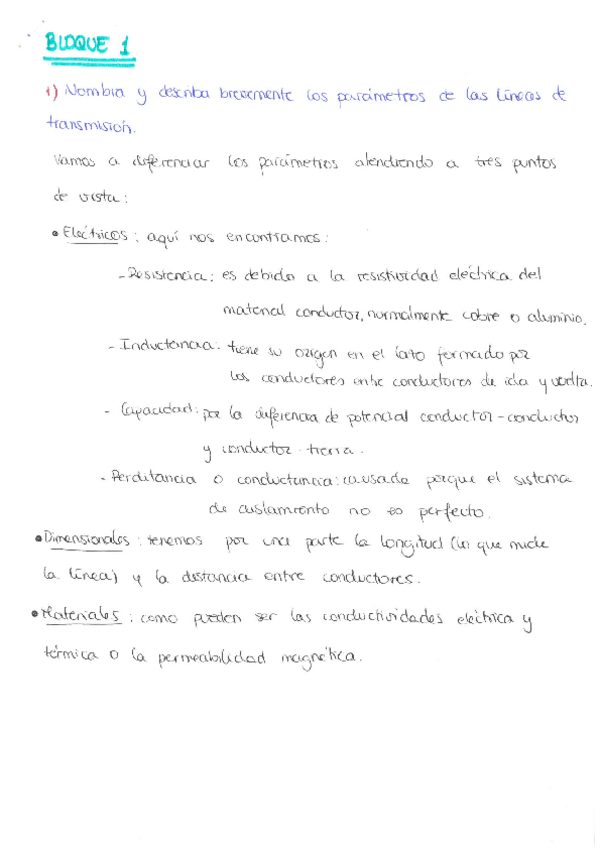 BLOQUE 1
1) Nombra y describa brevemente los parámetros de las líneas de
transmisión.
Vamos a diferenciar los parámetros atendiendo a tres puntos
de vista:
• Eléctricos: aquí nos encontramos:
- Resistencia: es debido a la resistividad eléctrica del
material conductor, normalmente cobre o aluminio.
- Inductancia: tiene su origen en el lazo formado por
los conductores entre conductores de ida y vuelta.
- Capacidad: por la diferencia de potencial conductor-conductor
y conductor-tierra.
- Perditancia o conductancia: causada porque el sistema
de aislamiento no es perfecto.
• Dimensionales: tenemos por una parte la longitud (lo que mide
la línea) y la distancia entre conductores.
• Materiales: como pueden ser las conductividades eléctrica y
térmica o la permeabilidad magnética.